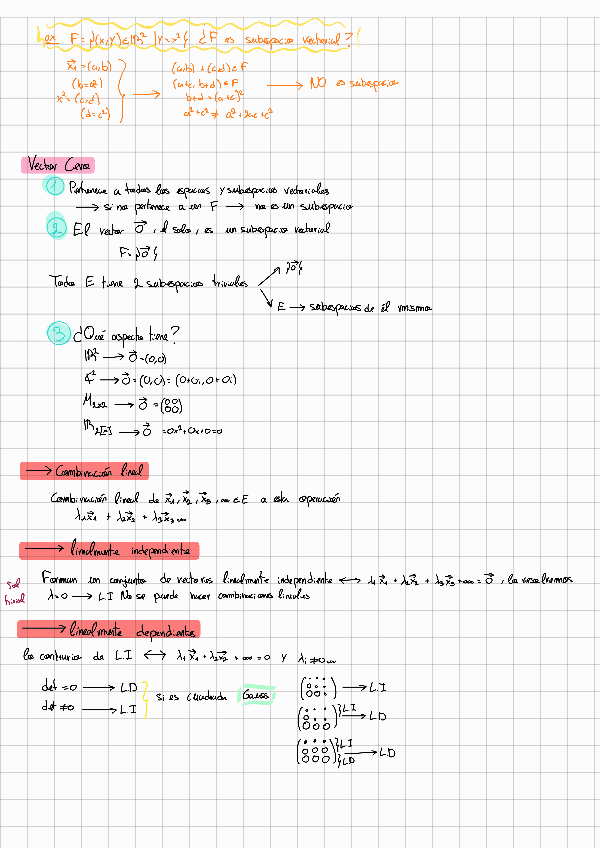 ex F = {(x,y) ∈ ℝ² | y = x²} ¿F es subespacio vectorial?
x⃗₁ = (a,b) (a,b) + (c,d) ∈ F
(b=a²) (a+c, b+d) ∈ F → NO es subespacio
x² = (c,d) → b+d = (a+c)²
(d=c²) a²+c² ≠ a²+2ac+c²
Vector Cero
① Pertenece a todos los espacios y subespacios vectoriales
→ si no pertenece a un F → no es un subespacio
② El vector 0⃗, él solo, es un subespacio vectorial
F = {0⃗}
{0⃗}
Todo E tiene 2 subespacios triviales
E → subespacios de él mismo
③ ¿Qué aspecto tiene?
ℝ² → 0⃗ = (0,0)
ℂ² → 0⃗ = (0,0) = (0+0i, 0+0i)
M₂ₓ₂ → 0⃗ = (00 00)
ℝ₂[x] → 0⃗ = 0x²+0x+0=0
→ Combinación lineal
Combinación lineal de x⃗₁, x⃗₂, x⃗₃, ... ∈ E a esta operación
λ₁x⃗₁ + λ₂x⃗₂ + λ₂x⃗₃ ...
→ linealmente independiente
Forman un conjunto de vectores linealmente independiente ↔ λ₁x⃗₁ + λ₂x⃗₂ + λ₃x⃗₃ + ... = 0⃗, lo resolvemos
Sol trivial
λ=0 → L.I No se puede hacer combinaciones lineales
→ linealmente dependiente
lo contrario de L.I ↔ λ₁x⃗₁ + λ₂x⃗₂ + ... = 0 y λᵢ ≠ 0 ...
det = 0 → LD si es cuadrada Gauss → L.I
det ≠ 0 → L.I
000 } L.I → LD
000 000 } L.I } LD → LD